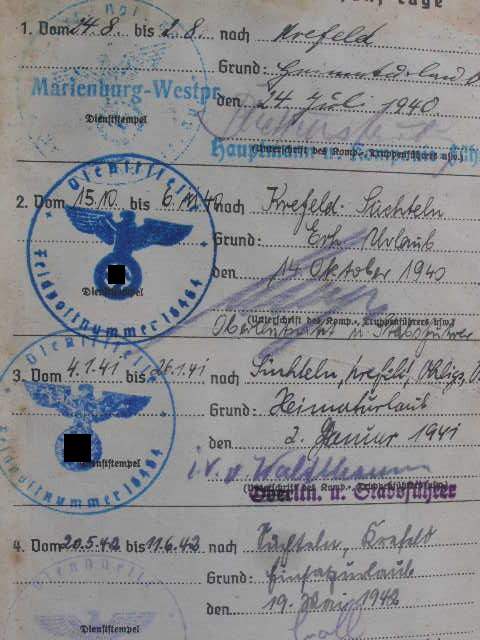 Tage
1. Vom 24.8. bis 2.8. nach Krefeld
Grund: Heimaturlaub
Marienburg-Westpr.
den 24. Juli 1940.
Dienststempel
Hauptmann u.
(Unterschrift des Komp.-, Truppenführers usw.)
2. Vom 15.10. bis 6.11.40 nach Krefeld-Süchteln
Dienststelle
Grund: Erh. Urlaub
den 14. Oktober 1940
Feldpostnummer 18464
Dienststempel
(Unterschrift des Komp.-, Truppenführers usw.)
Oberleutnant u. Stabsführer
Dienststelle
3. Vom 4.1.41 bis 26.1.41 nach Süchteln, Krefeld, Ohligs,
Grund: Heimaturlaub
den 2. Januar 1941
Dienststempel
i.V.
(Unterschrift des Komp.-, Truppenführers usw.)
Oberltn. u. Stabsführer
Feldpostnummer 18464
4. Vom 20.5.42 bis 11.6.42 nach Süchteln, Krefeld
Dienststelle
Grund: Einsatzurlaub
den 19. Mai 1942
Dienststempel